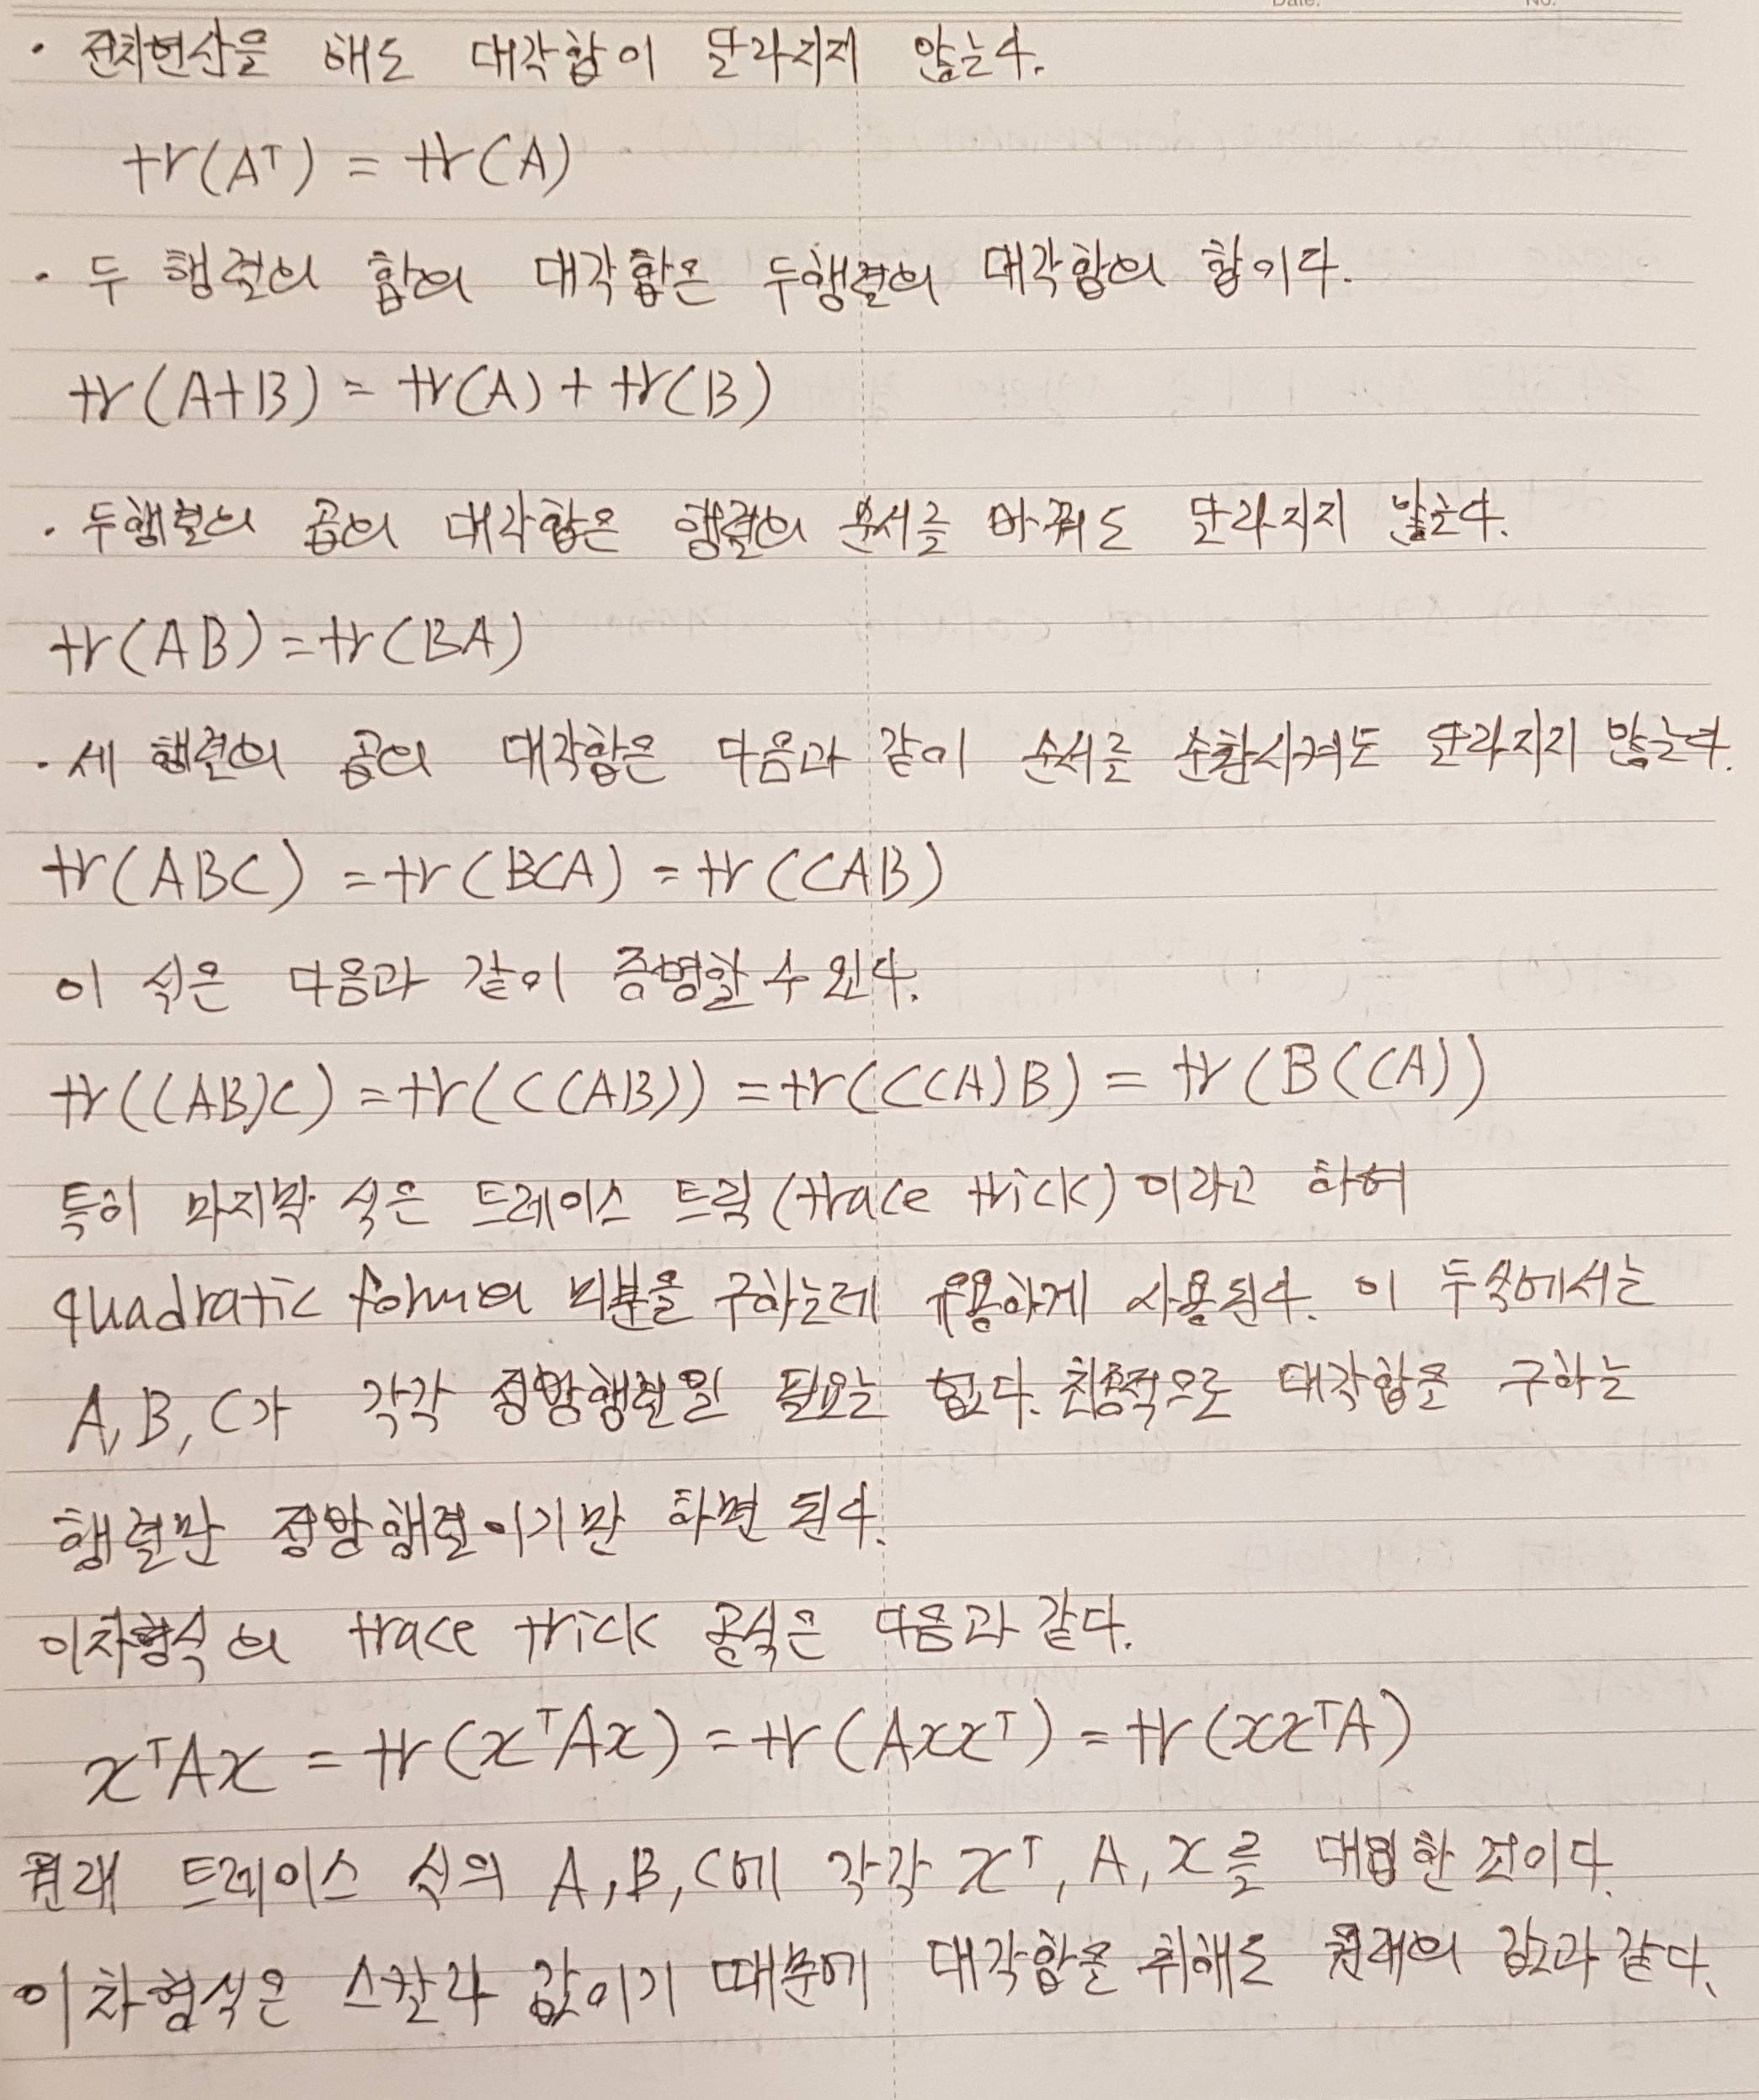 Date. No.
· 전치연산을 해도 대각합이 달라지지 않는다.
tr(Aᵀ) = tr(A)
· 두 행렬의 합의 대각합은 두행렬의 대각합의 합이다.
tr(A+B) = tr(A) + tr(B)
· 두행렬의 곱의 대각합은 행렬의 순서를 바꿔도 달라지지 않는다.
tr(AB) = tr(BA)
· 세 행렬의 곱의 대각합은 다음과 같이 순서를 순환시켜도 달라지지 않는다.
tr(ABC) = tr(BCA) = tr(CAB)
이 식은 다음과 같이 증명할 수 있다.
tr((AB)C) = tr(C(AB)) = tr((CA)B) = tr(B(CA))
특히 마지막 식은 트레이스 트릭(trace trick)이라고 하여
quadratic form의 미분을 구하는데 유용하게 사용된다. 이 두식에서는
A, B, C가 각각 정방행렬일 필요는 없다. 최종적으로 대각합을 구하는
행렬만 정방행렬이기만 하면 된다.
이차형식의 trace trick 공식은 다음과 같다.
xᵀAx = tr(xᵀAx) = tr(Axxᵀ) = tr(xxᵀA)
원래 트레이스 식의 A, B, C에 각각 xᵀ, A, x를 대입한 것이다.
이차형식은 스칼라 값이기 때문에 대각합을 취해도 원래의 값과 같다.